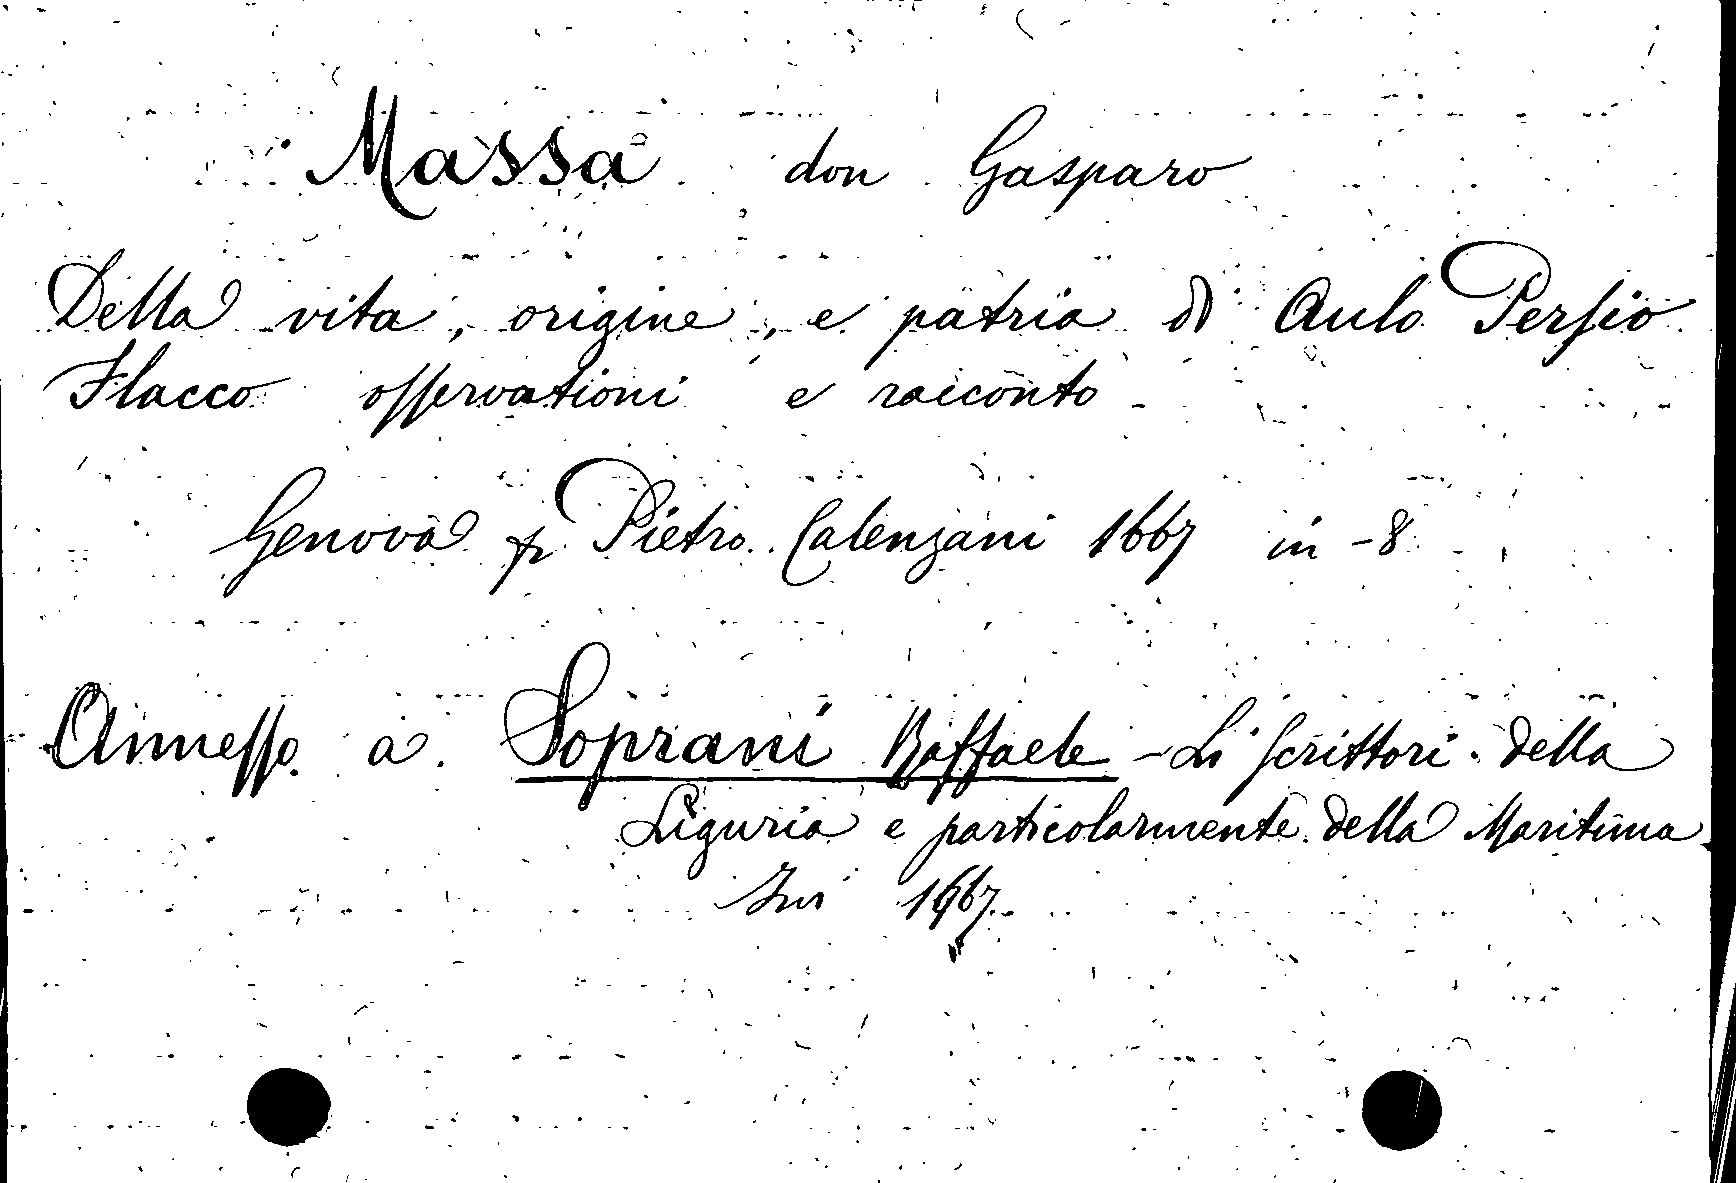 Massa don Gasparo
Della vita, origine, e patria di Aulo Perſio
Flacco oſſervationi e racconto
Genova p Pietro Calenzani 1667 in-8
Anneſſo a Soprani Raffaele - Li ſcrittori della
Liguria e particolarmente della Maritima
Ivi 1667